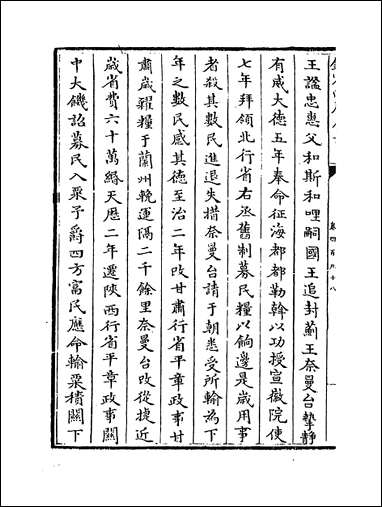 王諡忠惠父和斯和哩嗣國王追封薊王奈曼台摯静
有威大德五年奉命征海都都勒斡以功授宣徽院使
七年拜嶺北行省右丞舊制募民糧以餉邊是歲用事
者殺其數民進退失措奈曼台請于朝悉受所輸為下
年之數民感其德至治二年改甘肅行省平章政事甘
肅歲糴糧于蘭州輓運隔二千餘里奈曼台改從捷近
歲省費六十萬緡天厯二年遷陝西行省平章政事關
中大饑詔募民入粟予爵四方富民應命輸粟積關下
卷四百九十八